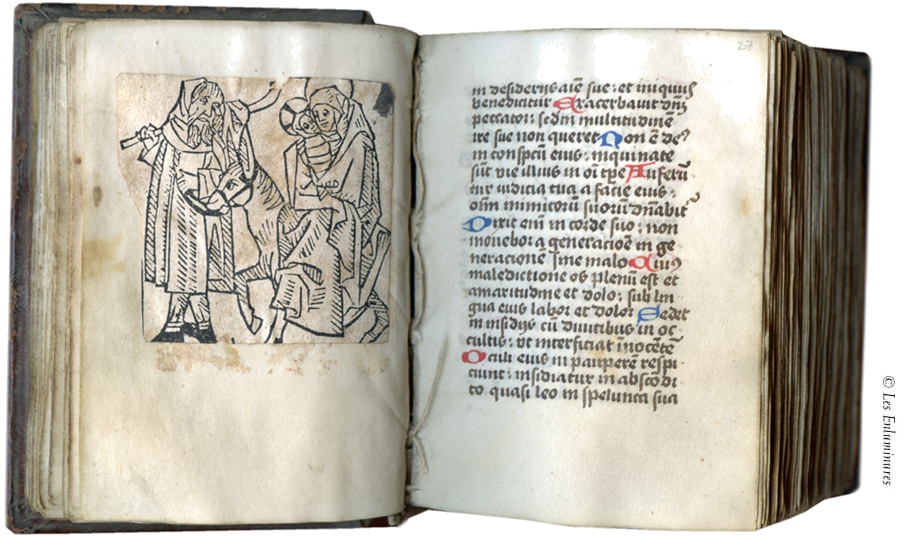 27
in desiderijs aīe sue : et iniquus
benedicitur Exacerbavit dn̄ʒ
peccator : sedm̄ multitudinē
ire sue non queret Non ē deꝰ
in conspcū eius : inquinate
sūt vie illius in oī tp̄e Auferū
tur iudicia tua a facie eius :
oīm inimicorū suorū dn̄abitꝰ
Dixit enī in corde suo : non
movebor a generacioē in ge
neracionē sine malo Cuiꝰ
maledictione os plenū est et
amaritudine et dolo : sub lin
gua eius labor et dolor Sedet
in insidijs cū divitibus in oc
cultis : ut interficiat īnocētē
Oculi eius in pauperē respi
ciunt : insidiatur in abscōdi
to quasi leo in spelunca sua
© Les Enluminures